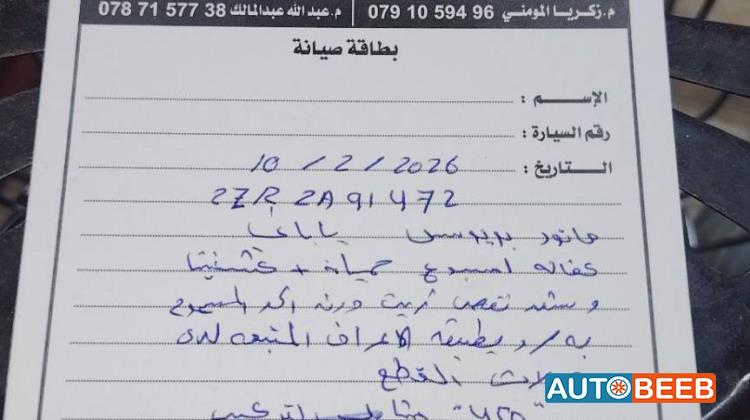 م. زكريا المومني 96 594 10 079 م. عبدالله عبدالمالك 38 577 71 078
بطاقة صيانة
الإسم :
رقم السيارة :
التاريخ : 10 / 2 / 2026
2ZR 2A91472
ماتور بريوس ياباني
كفاله اسبوع
نقص زيت ورفه الحد المسموح
به / و يطبق الاعراف المتبعه لدى
القطع
AUTOBEEB